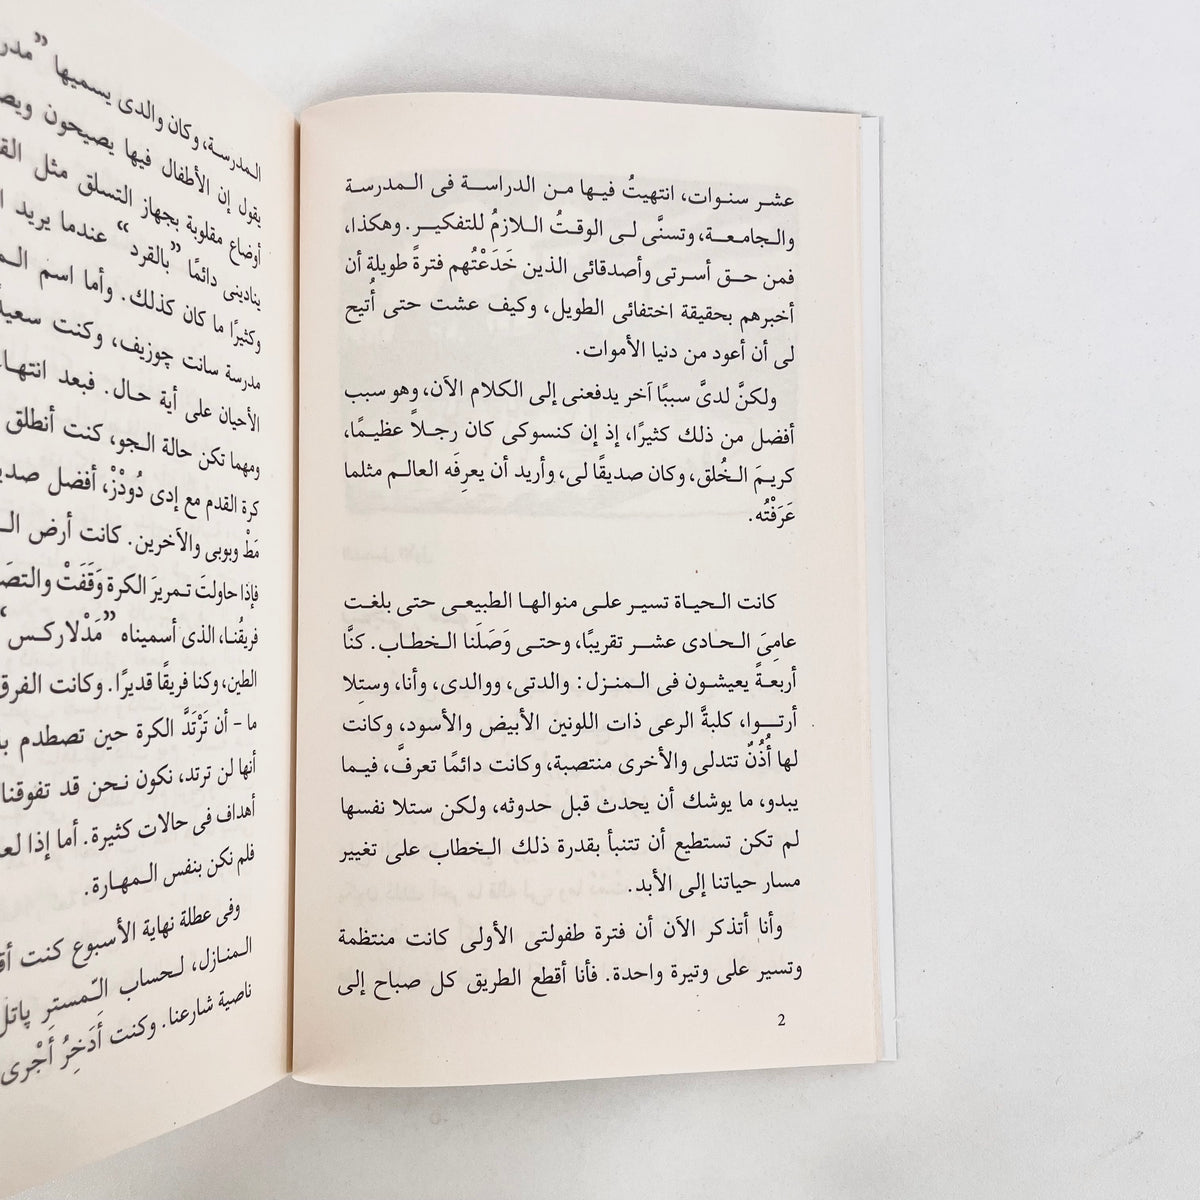 عشـر سنـوات، انتهيتُ فيهـا مـن الدراسـة فى الـمدرسـة
والـجامـعـة، وتسنَّى لـى الوقـتُ اللازمُ للتفكيـر. وهكـذا،
فمن حـق أسـرتى وأصدقائى الذين خَدَعْتُهم فترةً طويلة أن
أخبرهم بحقيقة اختفائى الطويل، وكيف عشت حتى أُتيح
لى أن أعود من دنيا الأموات.
ولكنَّ لدىَّ سببًا آخر يدفعنى إلى الكلام الآن، وهو سبب
أفضل من ذلك كثيرًا، إذ إن كنسوكى كان رجـلاً عظيـمًا،
كريـمَ الـخُلق، وكان صديقًا لى، وأريد أن يعرِفَه العالـم مثلما
عَرَفْتُه.
كانت الـحياة تسيـر علـى منوالهـا الطبيعـى حتى بلغـت
عامِىَ الـحادى عشـر تقريبًا، وحتـى وَصَلَنا الـخطاب. كنَّا
أربعـةً يعيشـون فى الـمنـزل: والدتى، ووالدى، وأنا، وستِلا
أرتـوا، كلبةَ الرعى ذات اللونين الأبيض والأسود، وكانت
لها أُذُنٌ تتدلى والأخرى منتصبة، وكانت دائمًا تعرفَ، فيـما
يبدو، ما يوشك أن يحدث قبل حدوثه، ولكن ستلا نفسها
لم تكن تستطيع أن تتنبأ بقدرة ذلك الـخطاب على تغيير
مسار حياتنا إلى الأبد.
وأنا أتذكر الآن أن فترة طفولتى الأولى كانت منتظمة
وتسير على وتيرة واحدة. فأنا أقطع الطريق كل صباح إلى
2
الـمدرسـة، وكان والدى يسميها ”مدر
يقول إن الأطفال فيها يصيحون ويص
أوضاع مقلوبة بجهاز التسلق مثل الق
ينادينى دائمًا ”بالقرد“ عندما يريد ا
وكثيرًا ما كان كذلك. وأما اسم الـم
مدرسة سانت چوزيف، وكنت سعيدً
الأحيان على أية حـال. فبعد انتهـا
ومهما تكن حالة الـجو، كنت أنطلق
كرة القدم مع إدى دُودْزْ، أفضل صدي
مَطْ وبوبى والآخرين. كانت أرض الـ
فإذا حاولتَ تـمريرَ الكرة وَقَفَتْ والتصَ
فريقُنـا، الذى أسميناه ”مَدْلاركـس“
الطين، وكنا فريقًا قديرًا. وكانت الفرق
ما - أن تَرْتَدَّ الكرة حين تصطدم با
أنها لن ترتد، نكون نـحن قد تفوقنا
أهداف فى حالات كثيرة. أما إذا لع
فلم نكن بنفس الـمهارة.
وفى عطلة نهاية الأسبوع كنت أق
الـمنـازل، لـحساب الـمِستر پاتل
ناصية شارعنا. وكنت أَدَخِرُ أَجْرى